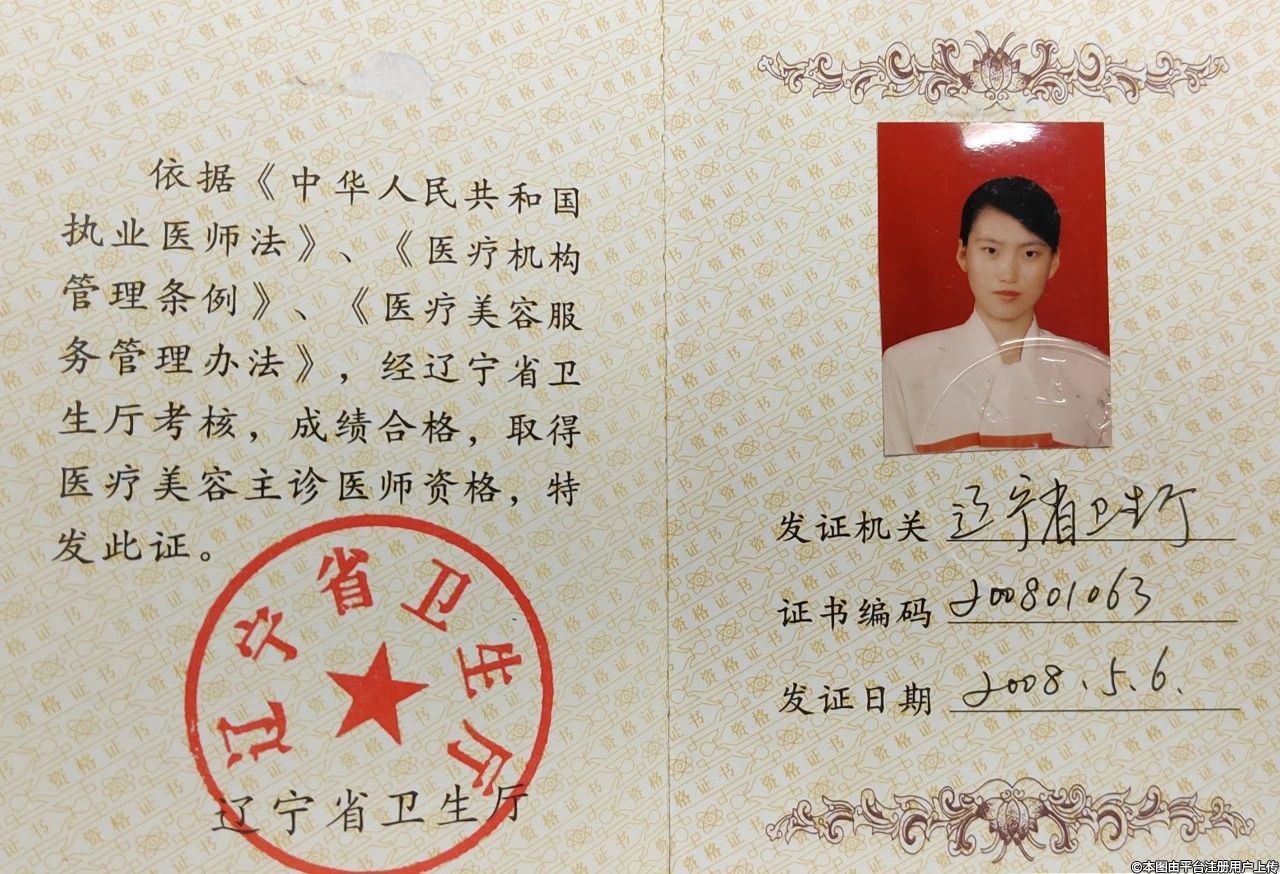 依据《中华人民共和国
执业医师法》、《医疗机构
管理条例》、《医疗美容服
务管理办法》，经辽宁省卫
生厅考核，成绩合格，取得
医疗美容主诊医师资格，特
发此证。
辽宁省卫生厅
辽宁省卫生厅
发证机关 辽宁省卫生厅
证书编码 200801063
发证日期 2008.5.6.
©本图由平台注册用户上传